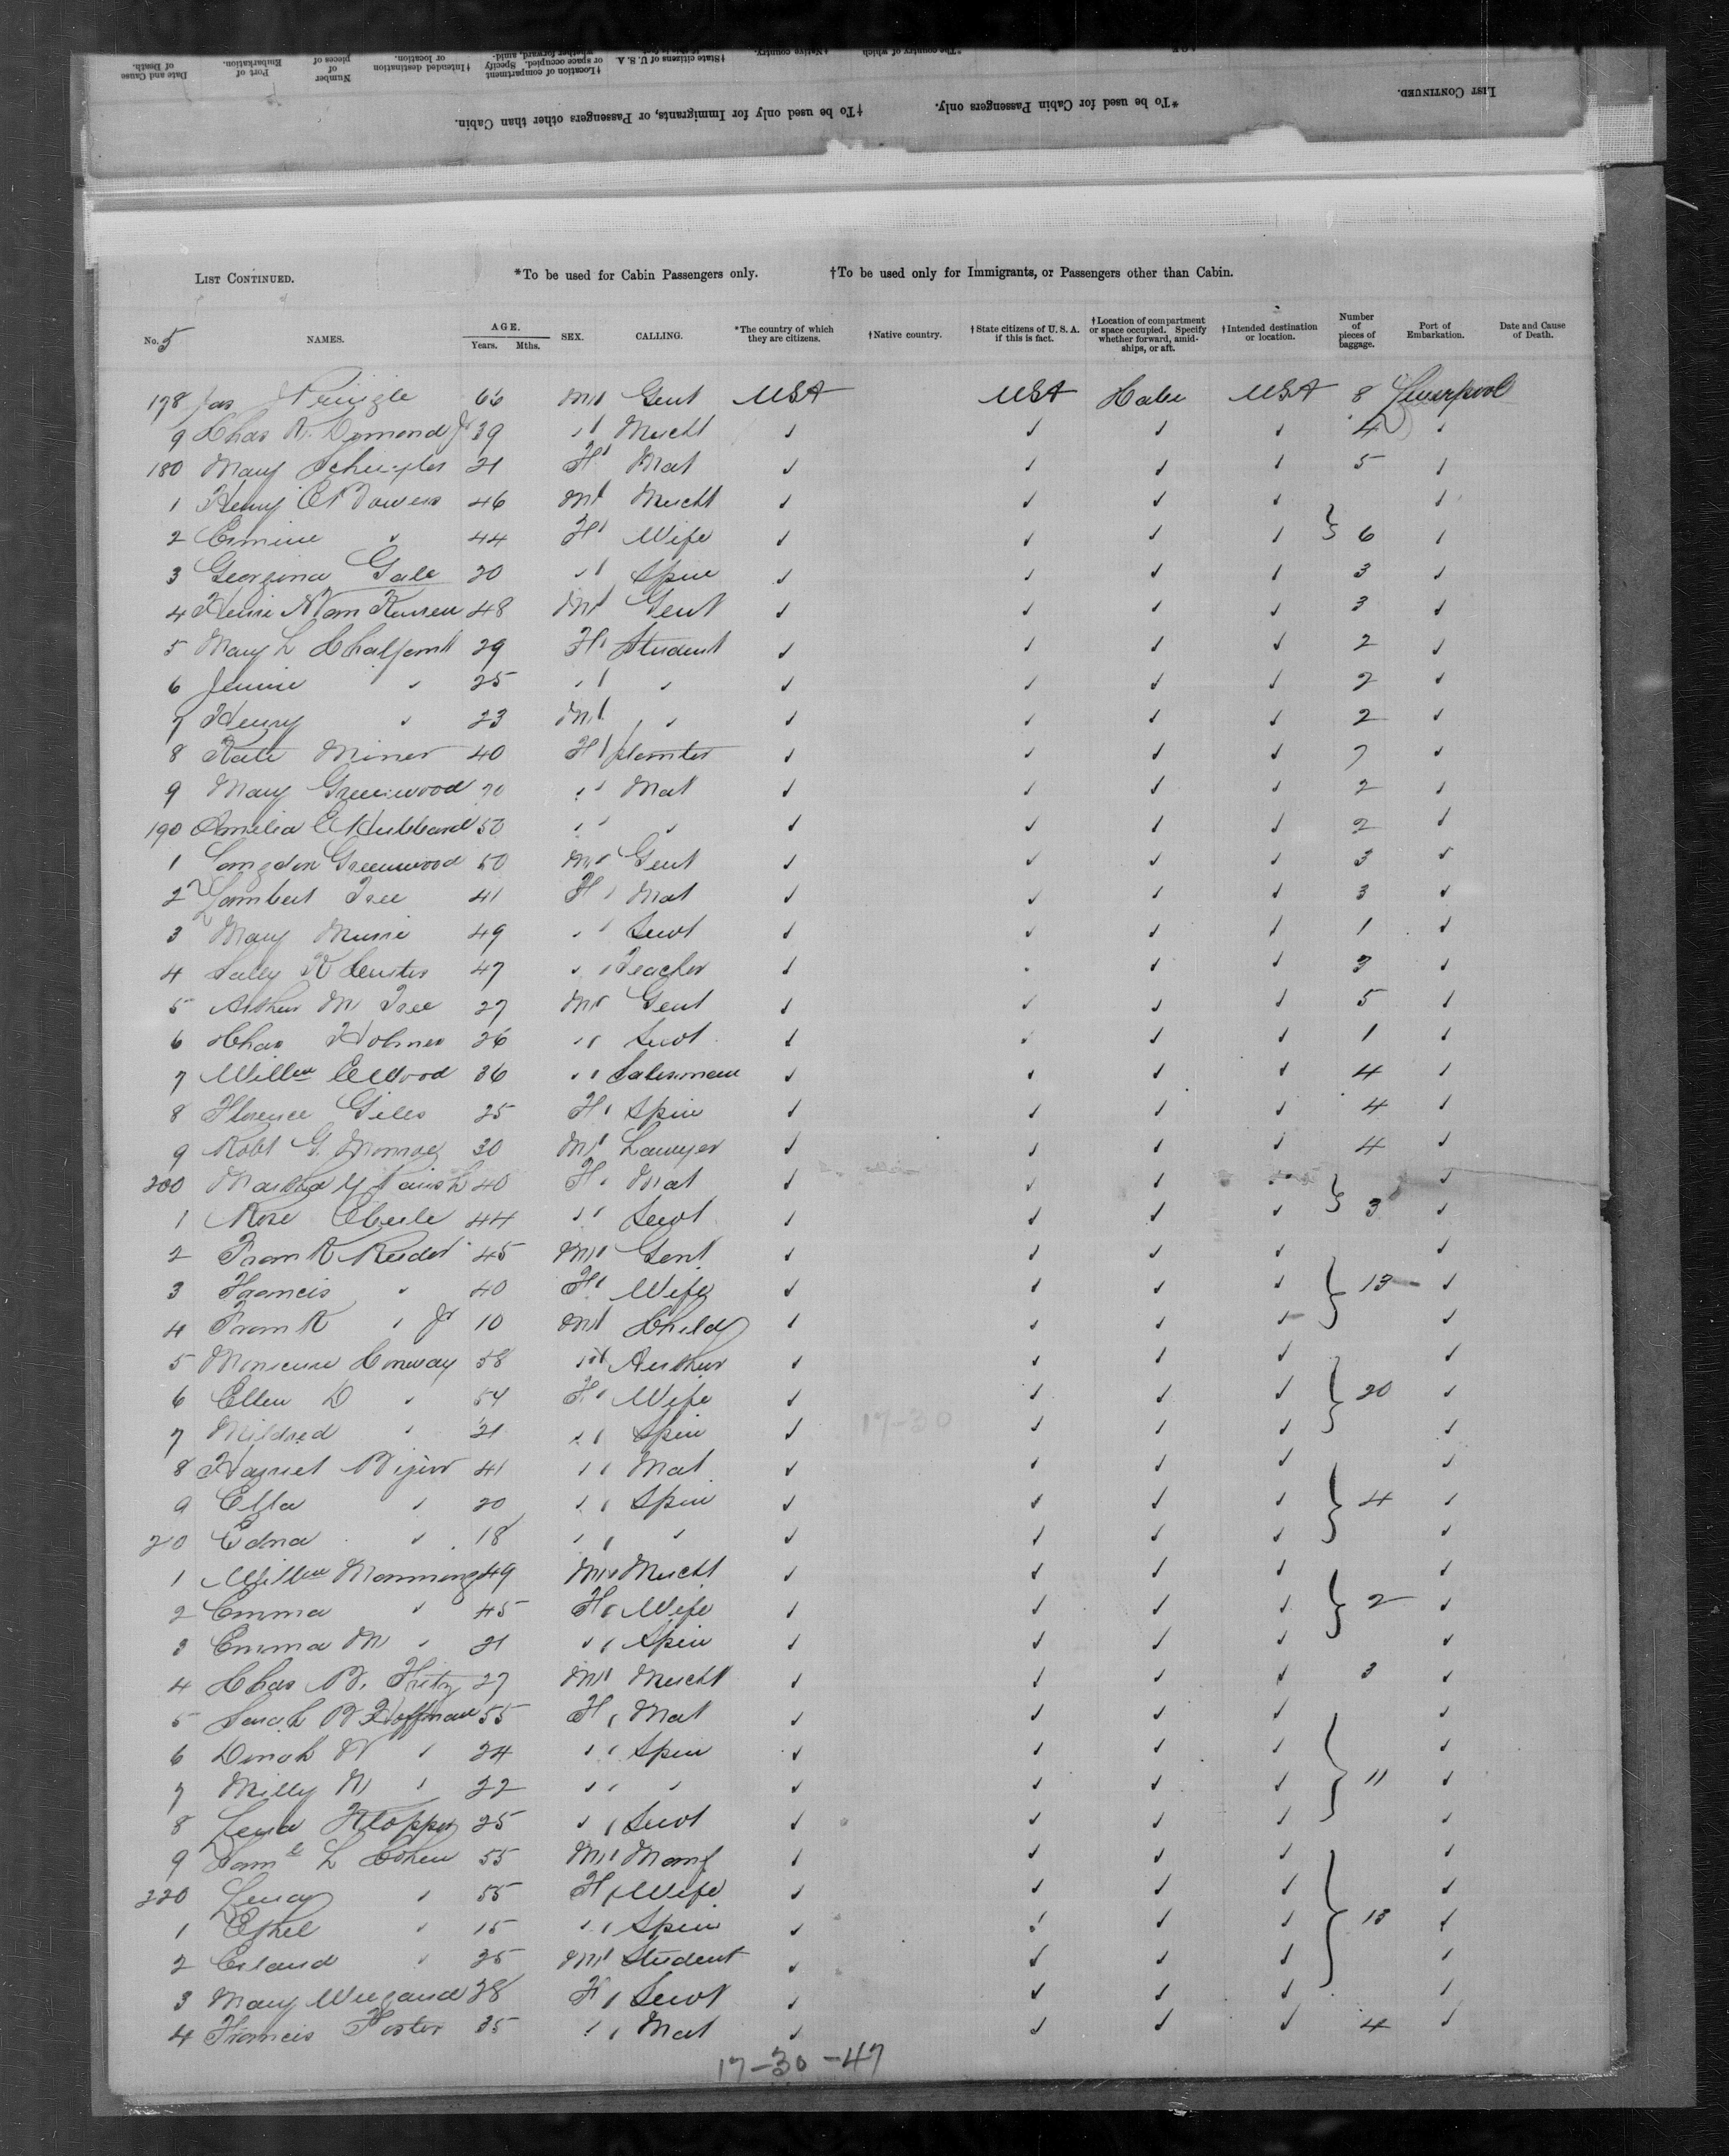 LIST CONTINUED.
*To be used for Cabin Passengers only.
†To be used only for Immigrants, or Passengers other than Cabin.
Date and Cause of Death. Port of Embarkation. Number of pieces of †Intended destination or location. †Location of compartment or space occupied. Specify whether forward, amid- †State citizens of U. S. A. †Native country. *The country of which
LIST CONTINUED. *To be used for Cabin Passengers only. †To be used only for Immigrants, or Passengers other than Cabin.
No. 5 NAMES. AGE. Years. Mths. SEX. CALLING. *The country of which they are citizens. †Native country. †State citizens of U. S. A. if this is fact. †Location of compartment or space occupied. Specify whether forward, amidships, or aft. †Intended destination or location. Number of pieces of baggage. Port of Embarkation. Date and Cause of Death.
178 Jas Pringle 66 M Gent USA USA USA 8 Liverpool
9 Chas R. Dymond Jr 39 " Mercht ✓ ✓ ✓ ✓ 4 ✓
180 Mary 21 F Mat ✓ ✓ ✓ ✓ 5 ✓
1 Henry Bowers 46 M Mercht ✓ ✓ ✓ ✓ ✓
2 " 44 F Wife ✓ ✓ ✓ ✓ } 6 ✓
3 Georgina Gale 20 " Spin ✓ ✓ ✓ ✓ 3 ✓
4 48 M Gent ✓ ✓ ✓ ✓ 3 ✓
5 Mary L Chalfant 29 F Student ✓ ✓ ✓ ✓ 2 ✓
6 Jennie " 25 " " ✓ ✓ ✓ ✓ 2 ✓
7 Henry " 23 M " ✓ ✓ ✓ ✓ 2 ✓
8 Kate Miner 40 F planter ✓ ✓ ✓ ✓ 7 ✓
9 Mary Greenwood 70 " Mat ✓ ✓ ✓ ✓ 2 ✓
190 Amelia C Hubbard 50 " " ✓ ✓ ✓ ✓ 2 ✓
1 Langdon Greenwood 50 M Gent ✓ ✓ ✓ ✓ 3 ✓
2 Lambert Tree 41 F Mat ✓ ✓ ✓ ✓ 3 ✓
3 Mary 49 " Servt ✓ ✓ ✓ ✓ 1 ✓
4 Sally 47 " Teacher ✓ ✓ ✓ 3 ✓
5 Arthur M Tree 27 M Gent ✓ ✓ ✓ ✓ 5 ✓
6 Chas Holmes 26 " Servt ✓ ✓ ✓ ✓ 1 ✓
7 Willm C Wood 36 " Salesman ✓ ✓ ✓ ✓ 4 ✓
8 Florence Giles 25 F Spin ✓ ✓ ✓ ✓ 4 ✓
9 Robt G. Monroe 30 M Lawyer ✓ ✓ ✓ ✓ 4 ✓
200 Martha Y Parish 40 F Mat ✓ ✓ ✓ ✓
1 Rose Eberle 44 " Servt ✓ ✓ ✓ ✓ } 3 ✓
2 Frank 45 M Gent ✓ ✓ ✓ ✓ ✓
3 Francis " 40 F Wife ✓ ✓ ✓ ✓ } 13 ✓
4 Frank " Jr 10 M Child ✓ ✓ ✓ ✓
5 Moncure Conway 58 M Author ✓ ✓ ✓ ✓ ✓
6 Ellen D " 54 F Wife ✓ ✓ ✓ ✓ } 20 ✓
7 Mildred " 21 " Spin ✓ 17-30 ✓ ✓ ✓ ✓
8 Harriet Bijur 41 " Mat ✓ ✓ ✓ ✓ ✓
9 Ella " 20 " Spin ✓ ✓ ✓ ✓ } 4 ✓
20 Edna " 18 " " ✓ ✓ ✓ ✓ ✓
1 Willm Manning 49 M Mercht ✓ ✓ ✓ ✓
2 Emma " 45 F Wife ✓ ✓ ✓ ✓ } 2 ✓
3 Emma M " 21 " Spin ✓ ✓ ✓ ✓ ✓
4 Chas B. Fritz 27 M Mercht ✓ ✓ ✓ ✓ 3 ✓
5 Sarah B Hoffman 55 F Mat ✓ ✓ ✓ ✓ ✓
6 Dinah W " 24 " Spin ✓ ✓ ✓ ✓ ✓
7 Milly W " 22 " " ✓ ✓ ✓ ✓ } 11 ✓
8 Lena Klopper 25 " Servt ✓ ✓ ✓ ✓ ✓
9 Saml L Cohen 55 M Manf ✓ ✓ ✓ ✓ ✓
220 Lena " 55 F Wife ✓ ✓ ✓ ✓ ✓
1 Ethel " 15 " Spin ✓ ✓ ✓ ✓ } 13 ✓
2 " 25 M Student ✓ ✓ ✓ ✓ ✓
3 Mary Wiegand 28 F Servt ✓ ✓ ✓ ✓ ✓
4 Francis Foster 35 " Mat ✓ ✓ ✓ ✓ 4 ✓
17-30-47